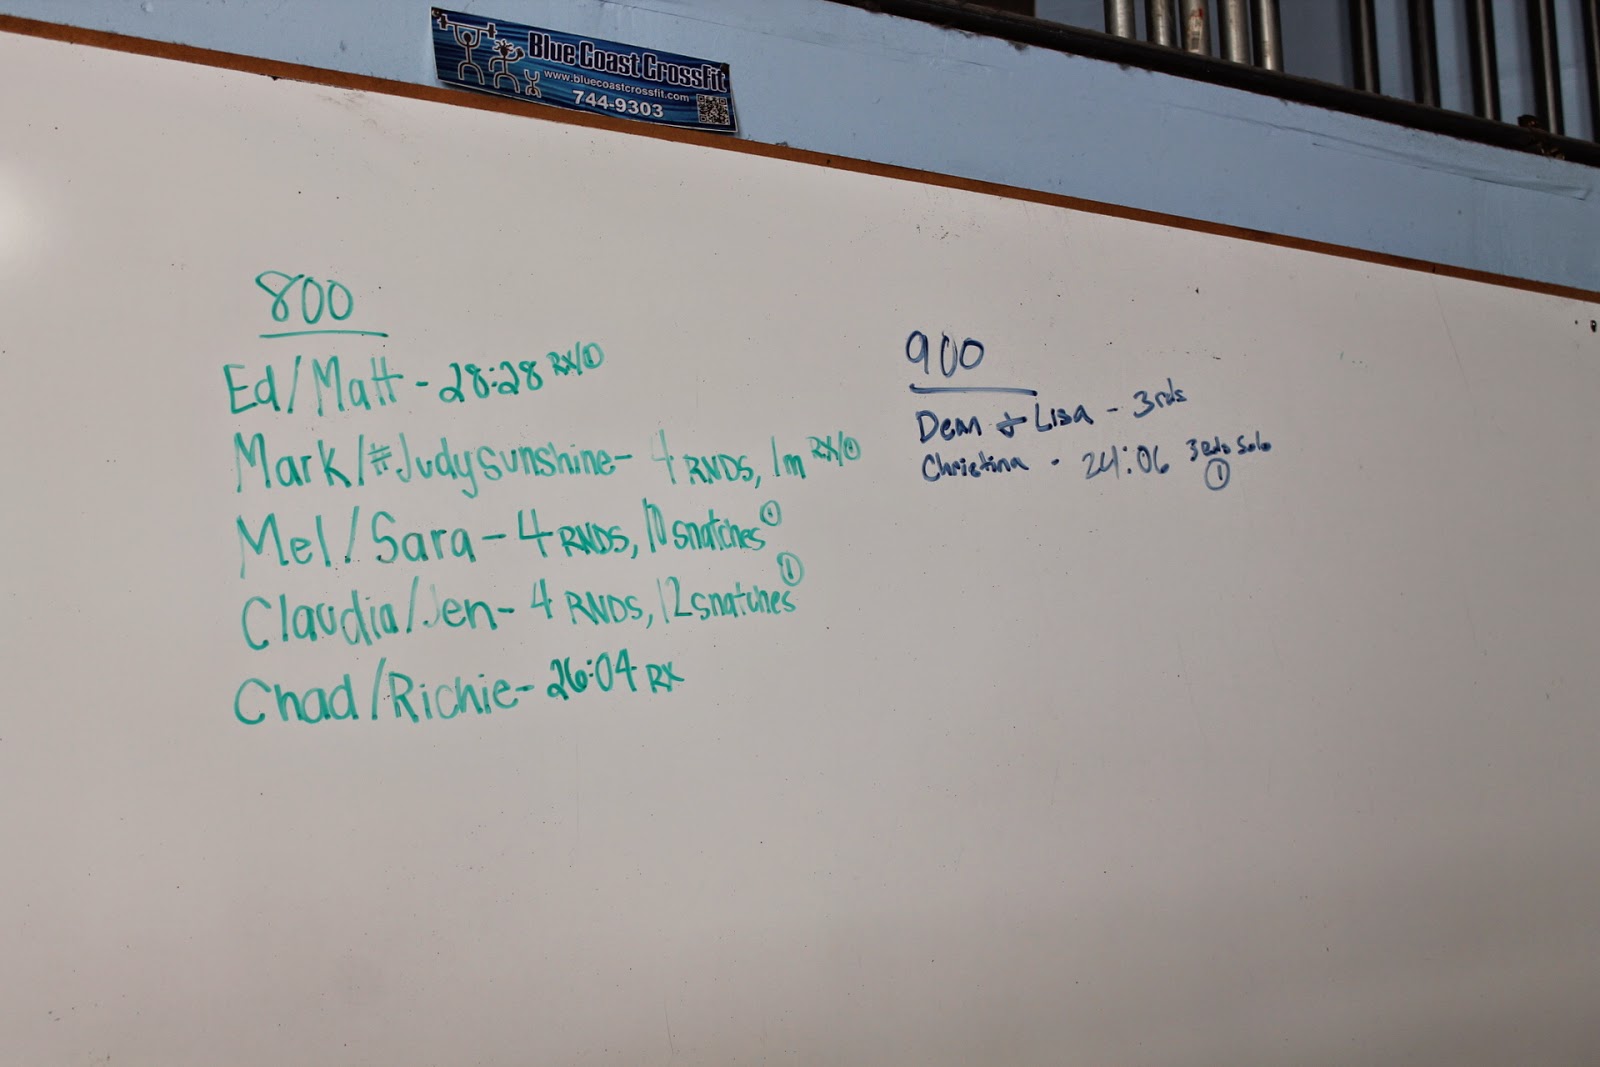 Blue Coast CrossFit
www.bluecoastcrossfit.com
744-9303
800
Ed/Matt - 28:28 RX/①
Mark/#Judysunshine - 4 RNDS, 1m RX/①
Mel/Sara - 4 RNDS, 10 snatches ①
Claudia/Jen - 4 RNDS, 12 snatches ①
Chad/Richie - 26:04 RX
900
Dean + Lisa - 3rds
Christina - 24:06 3 Rds Solo
①